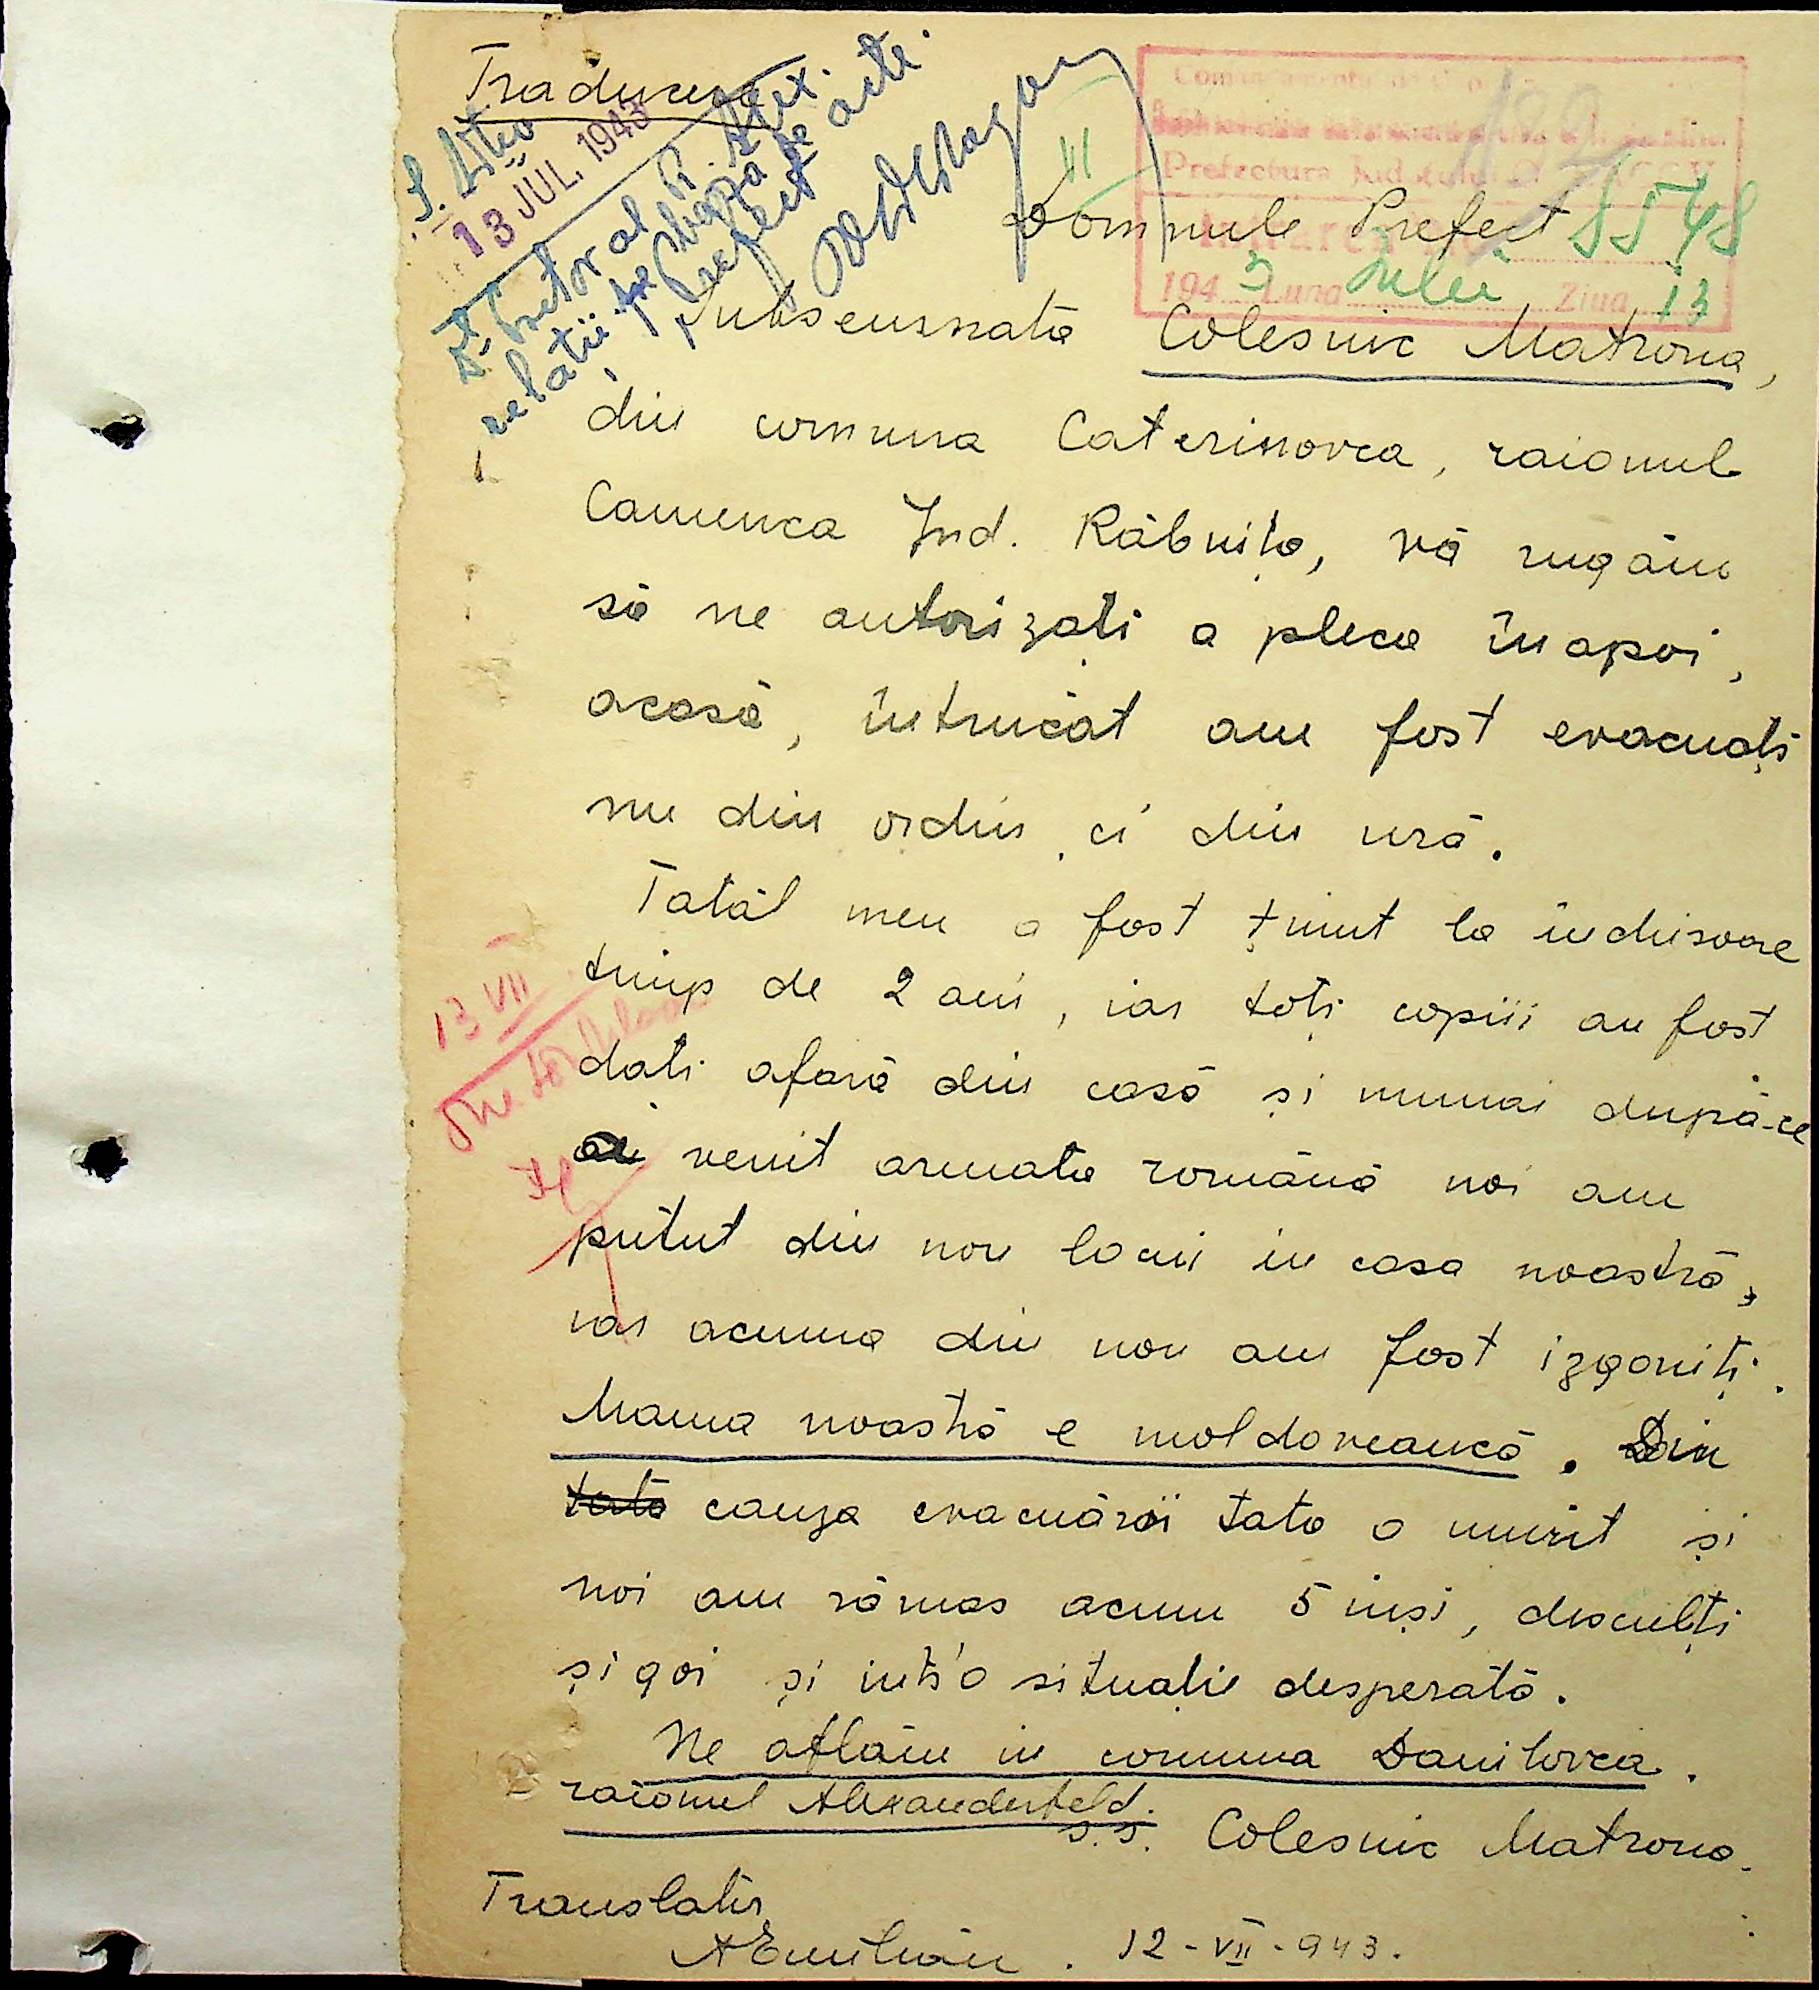 Traducere
13 JUL. 1943
Dl. Pretor al R. Alex.
relații pe bază de acte.
Prefect
Prefectura Județului
8548
1943 Luna Iulie Ziua 13
Domnule Prefect
Subsemnata Colesnic Matrona,
din comuna Caterinovca, raionul
Camenca Jud. Râbnița, vă rugăm
să ne autorizați a pleca înapoi,
acasă, întrucât am fost evacuați
nu din ordin, ci din ură.
Tatăl meu a fost ținut la închisoare
timp de 2 ani, iar toți copiii au fost
dați afară din casă și numai după-ce
au venit armata română noi am
putut din nou locui in casa noastră,
iar acuma din nou am fost izgoniți.
Mama noastră e moldoveancă. Din
tata cauza evacuării tata a murit și
noi am rămas acum 5 inși, desculți
și goi și intr'o situație desperată.
Ne aflăm in comuna Danilovca.
raionul Alexanderfeld.
s.s. Colesnic Matrona.
13 VII
Translator
AEmilian. 12-VII-943.